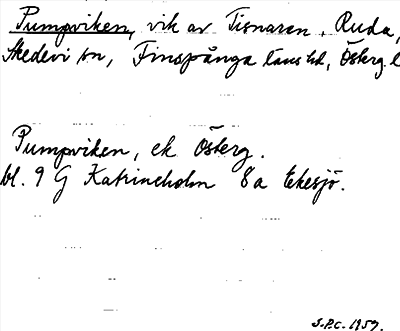 Pumpviken, vik av Tisnaren, Ruda,
Skedevi sn, Finspånga läns hd, Österg l
Pumpviken, ek Österg.
bl. 9 G Katrineholm 8a Ekesjö.
S.P.C. 1957.